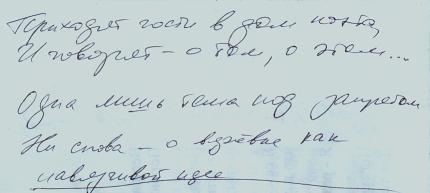 Приходят гости в дом поэта,
И говорят – о том, о этом...
Одна лишь тема под запретом
Ни слова – о вдове как
навязчивой идее